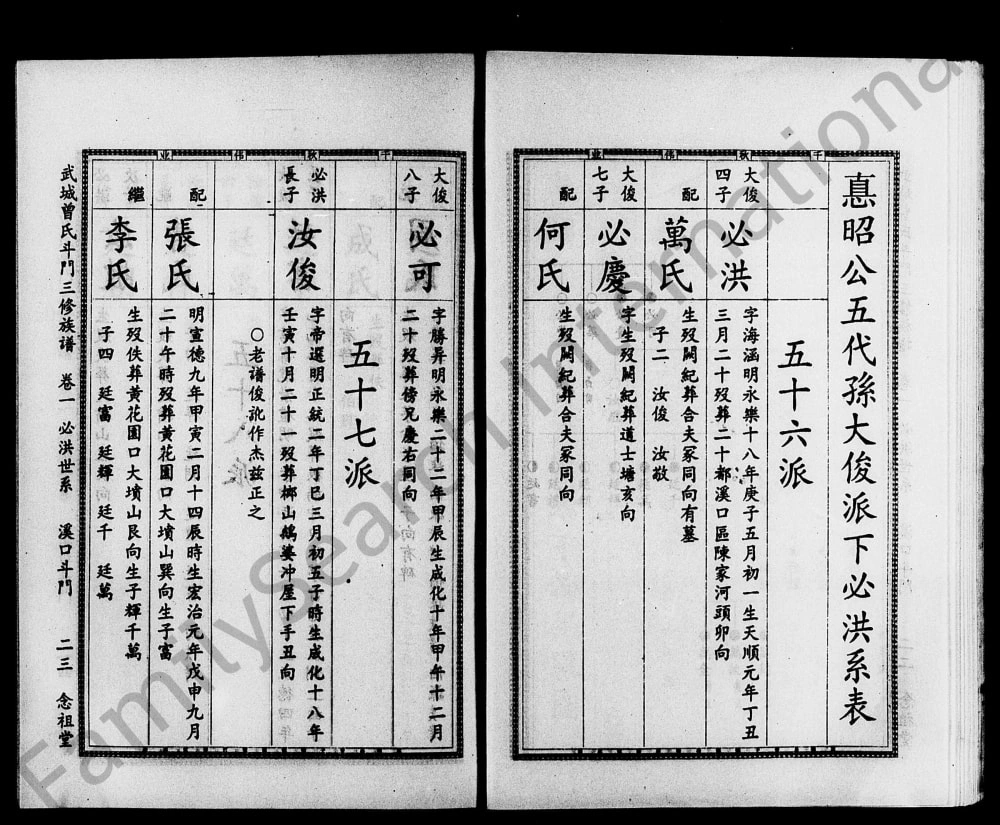 惪昭公五代孫大俊派下必洪系表
五十六派
大俊
四子
必洪
字海涵明永樂十八年庚子五月初一生天順元年丁丑
三月二十歿葬二十都溪口區陳家河頭卯向
配
萬氏
生歿闕紀葬合夫冢同向有墓
子二 汝俊 汝敬
大俊
七子
必慶
字生歿闕紀葬道士塘亥向
配
何氏
生歿闕紀葬合夫冢同向
大俊
八子
必可
字勝昇明永樂二十二年甲辰生成化十年甲午十二月
二十歿葬傍兄慶右同向
五十七派
必洪
長子
汝俊
字帝選明正統二年丁巳三月初五子時生成化十八年
壬寅十月二十一歿葬梆山鷂婆冲屋下手丑向
○老譜俊訛作杰兹正之
配
張氏
明宣德九年甲寅二月十四辰時生宏治元年戊申九月
二十午時歿葬黄花園口大墳山巽向生子富
繼
李氏
生歿佚葬黄花園口大墳山艮向生子輝千萬
子四 廷富 廷輝 廷千 廷萬
武城曾氏斗門三修族譜 卷一 必洪世系 溪口斗門 二三 念祖堂
FamilySearch International